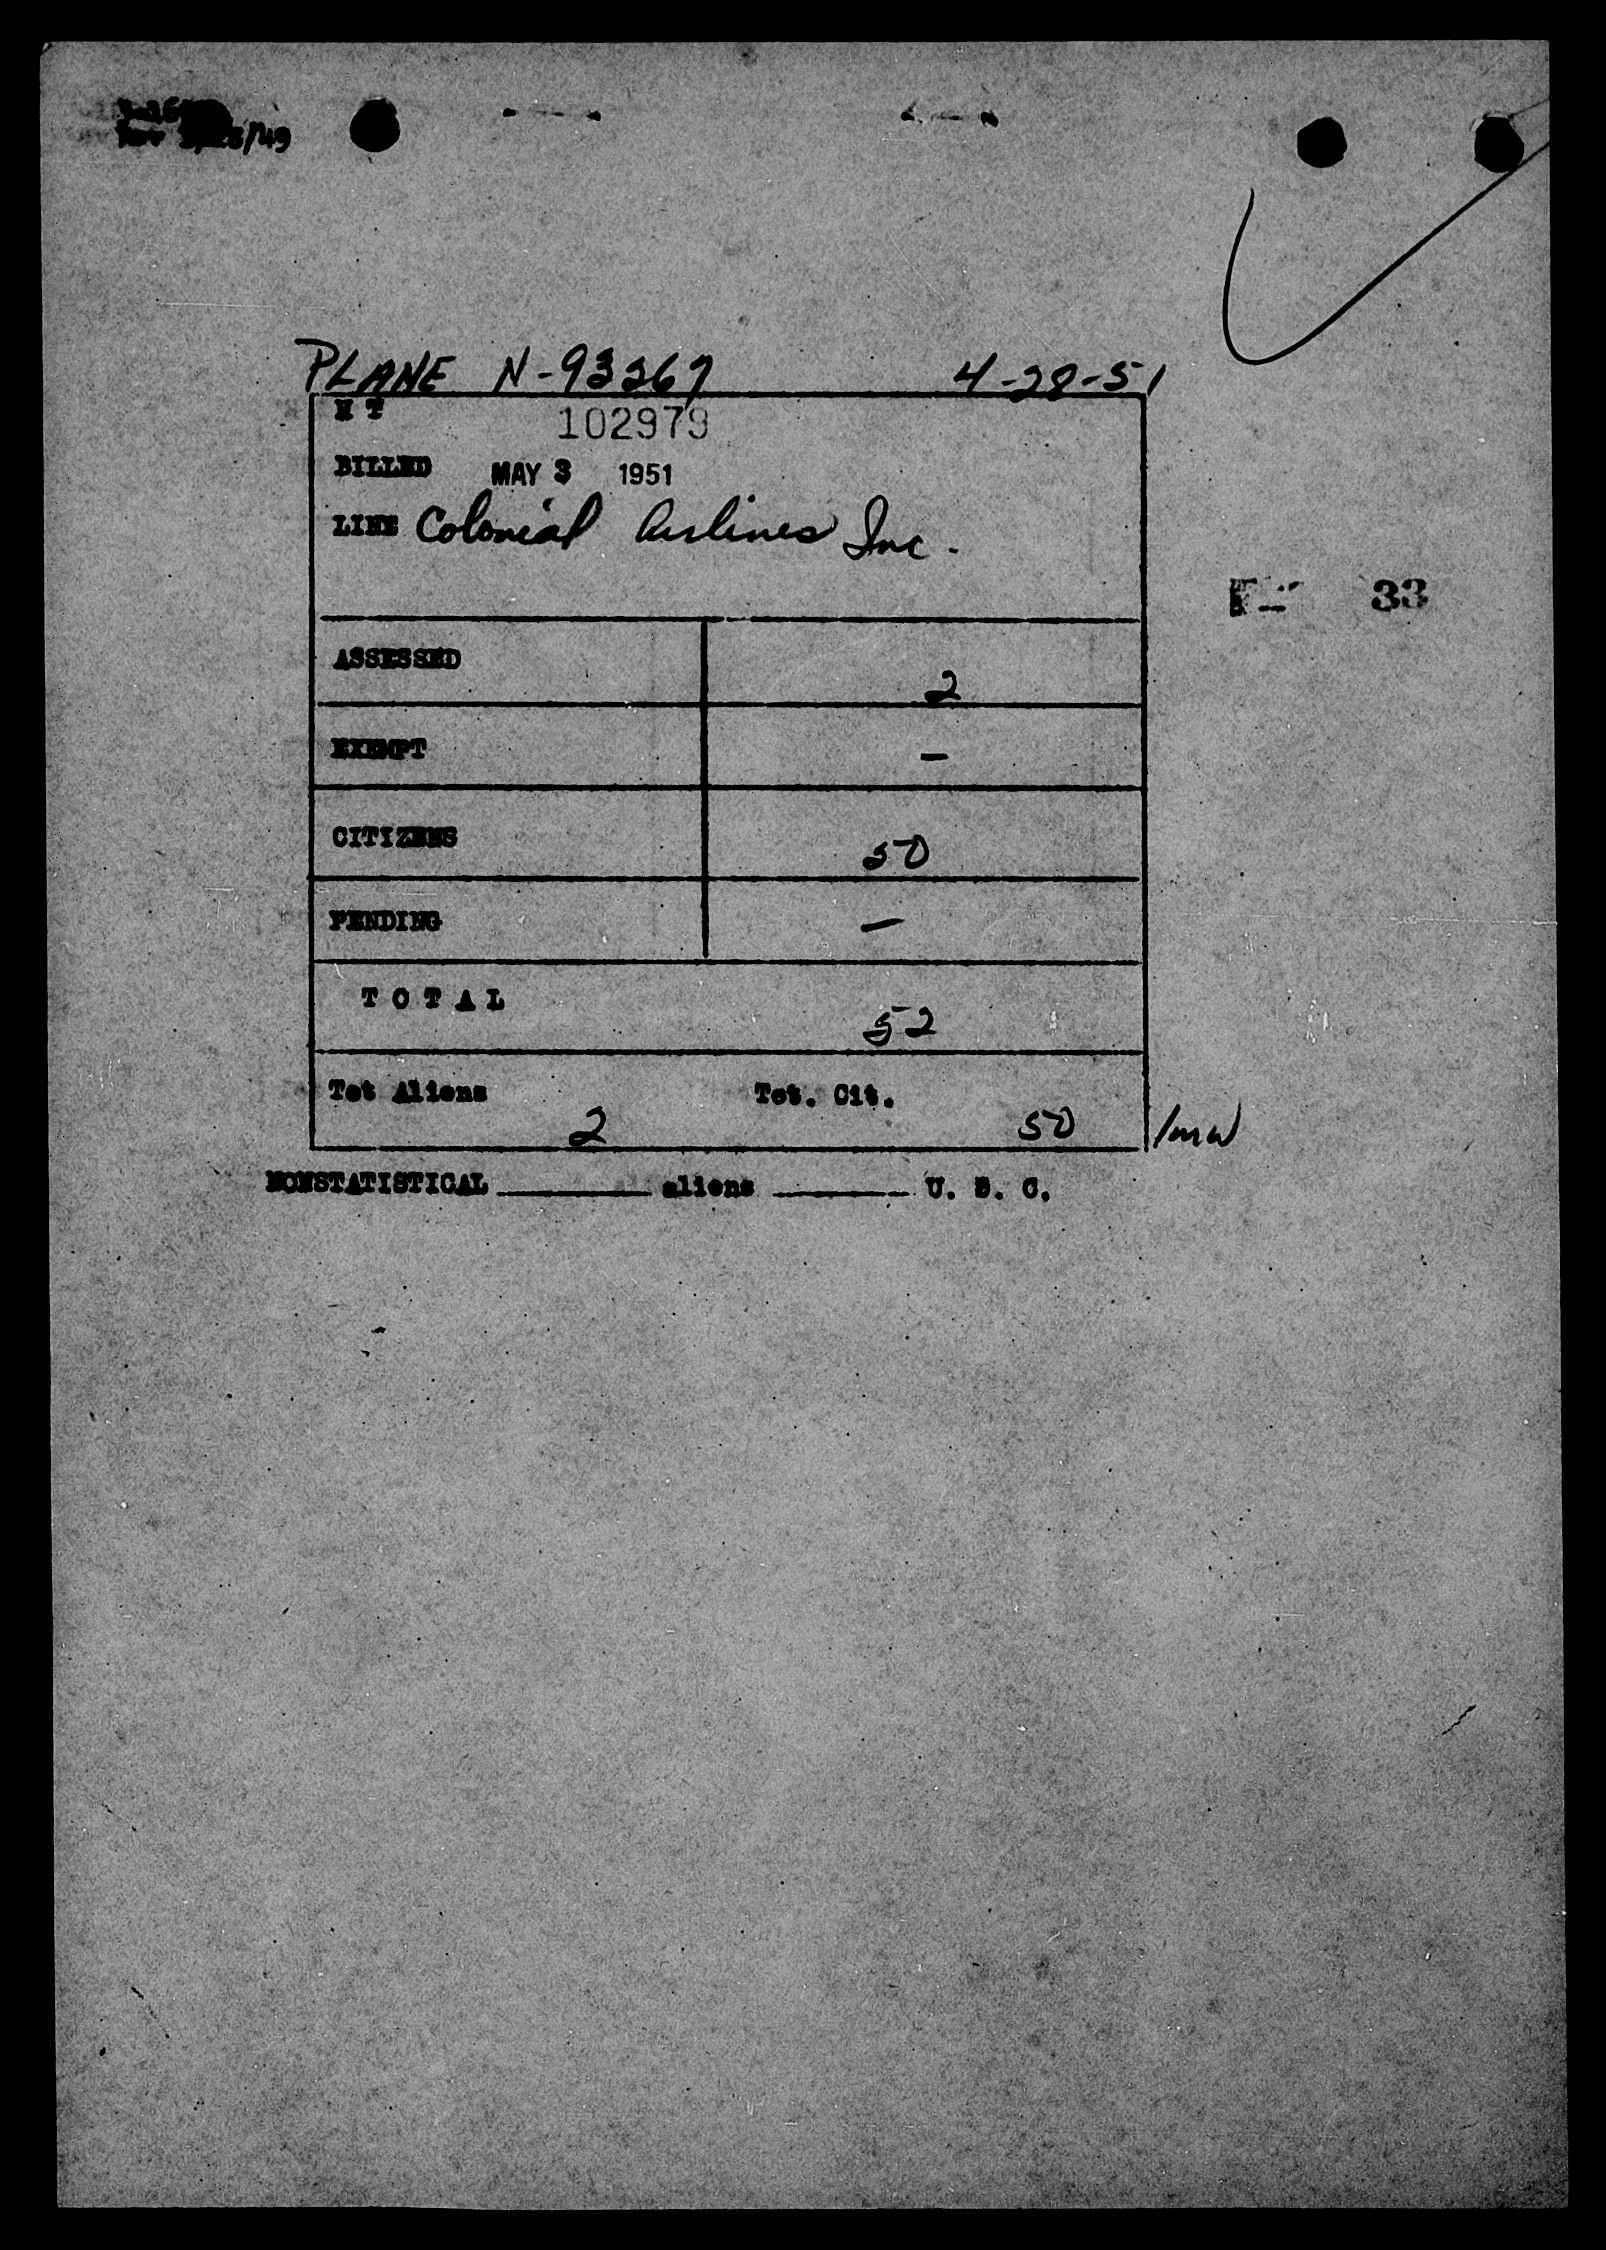 /49
PLANE N-93267 4-28-51
H T 102979
BILLED MAY 3 1951
LINE Colonial Airlines Inc.
33
ASSESSED 2
EXEMPT -
CITIZENS 50
PENDING -
T O T A L 52
Tot Aliens 2 Tot. Cit. 50 /mw
NONSTATISTICAL ______ aliens ______ U. S. C.